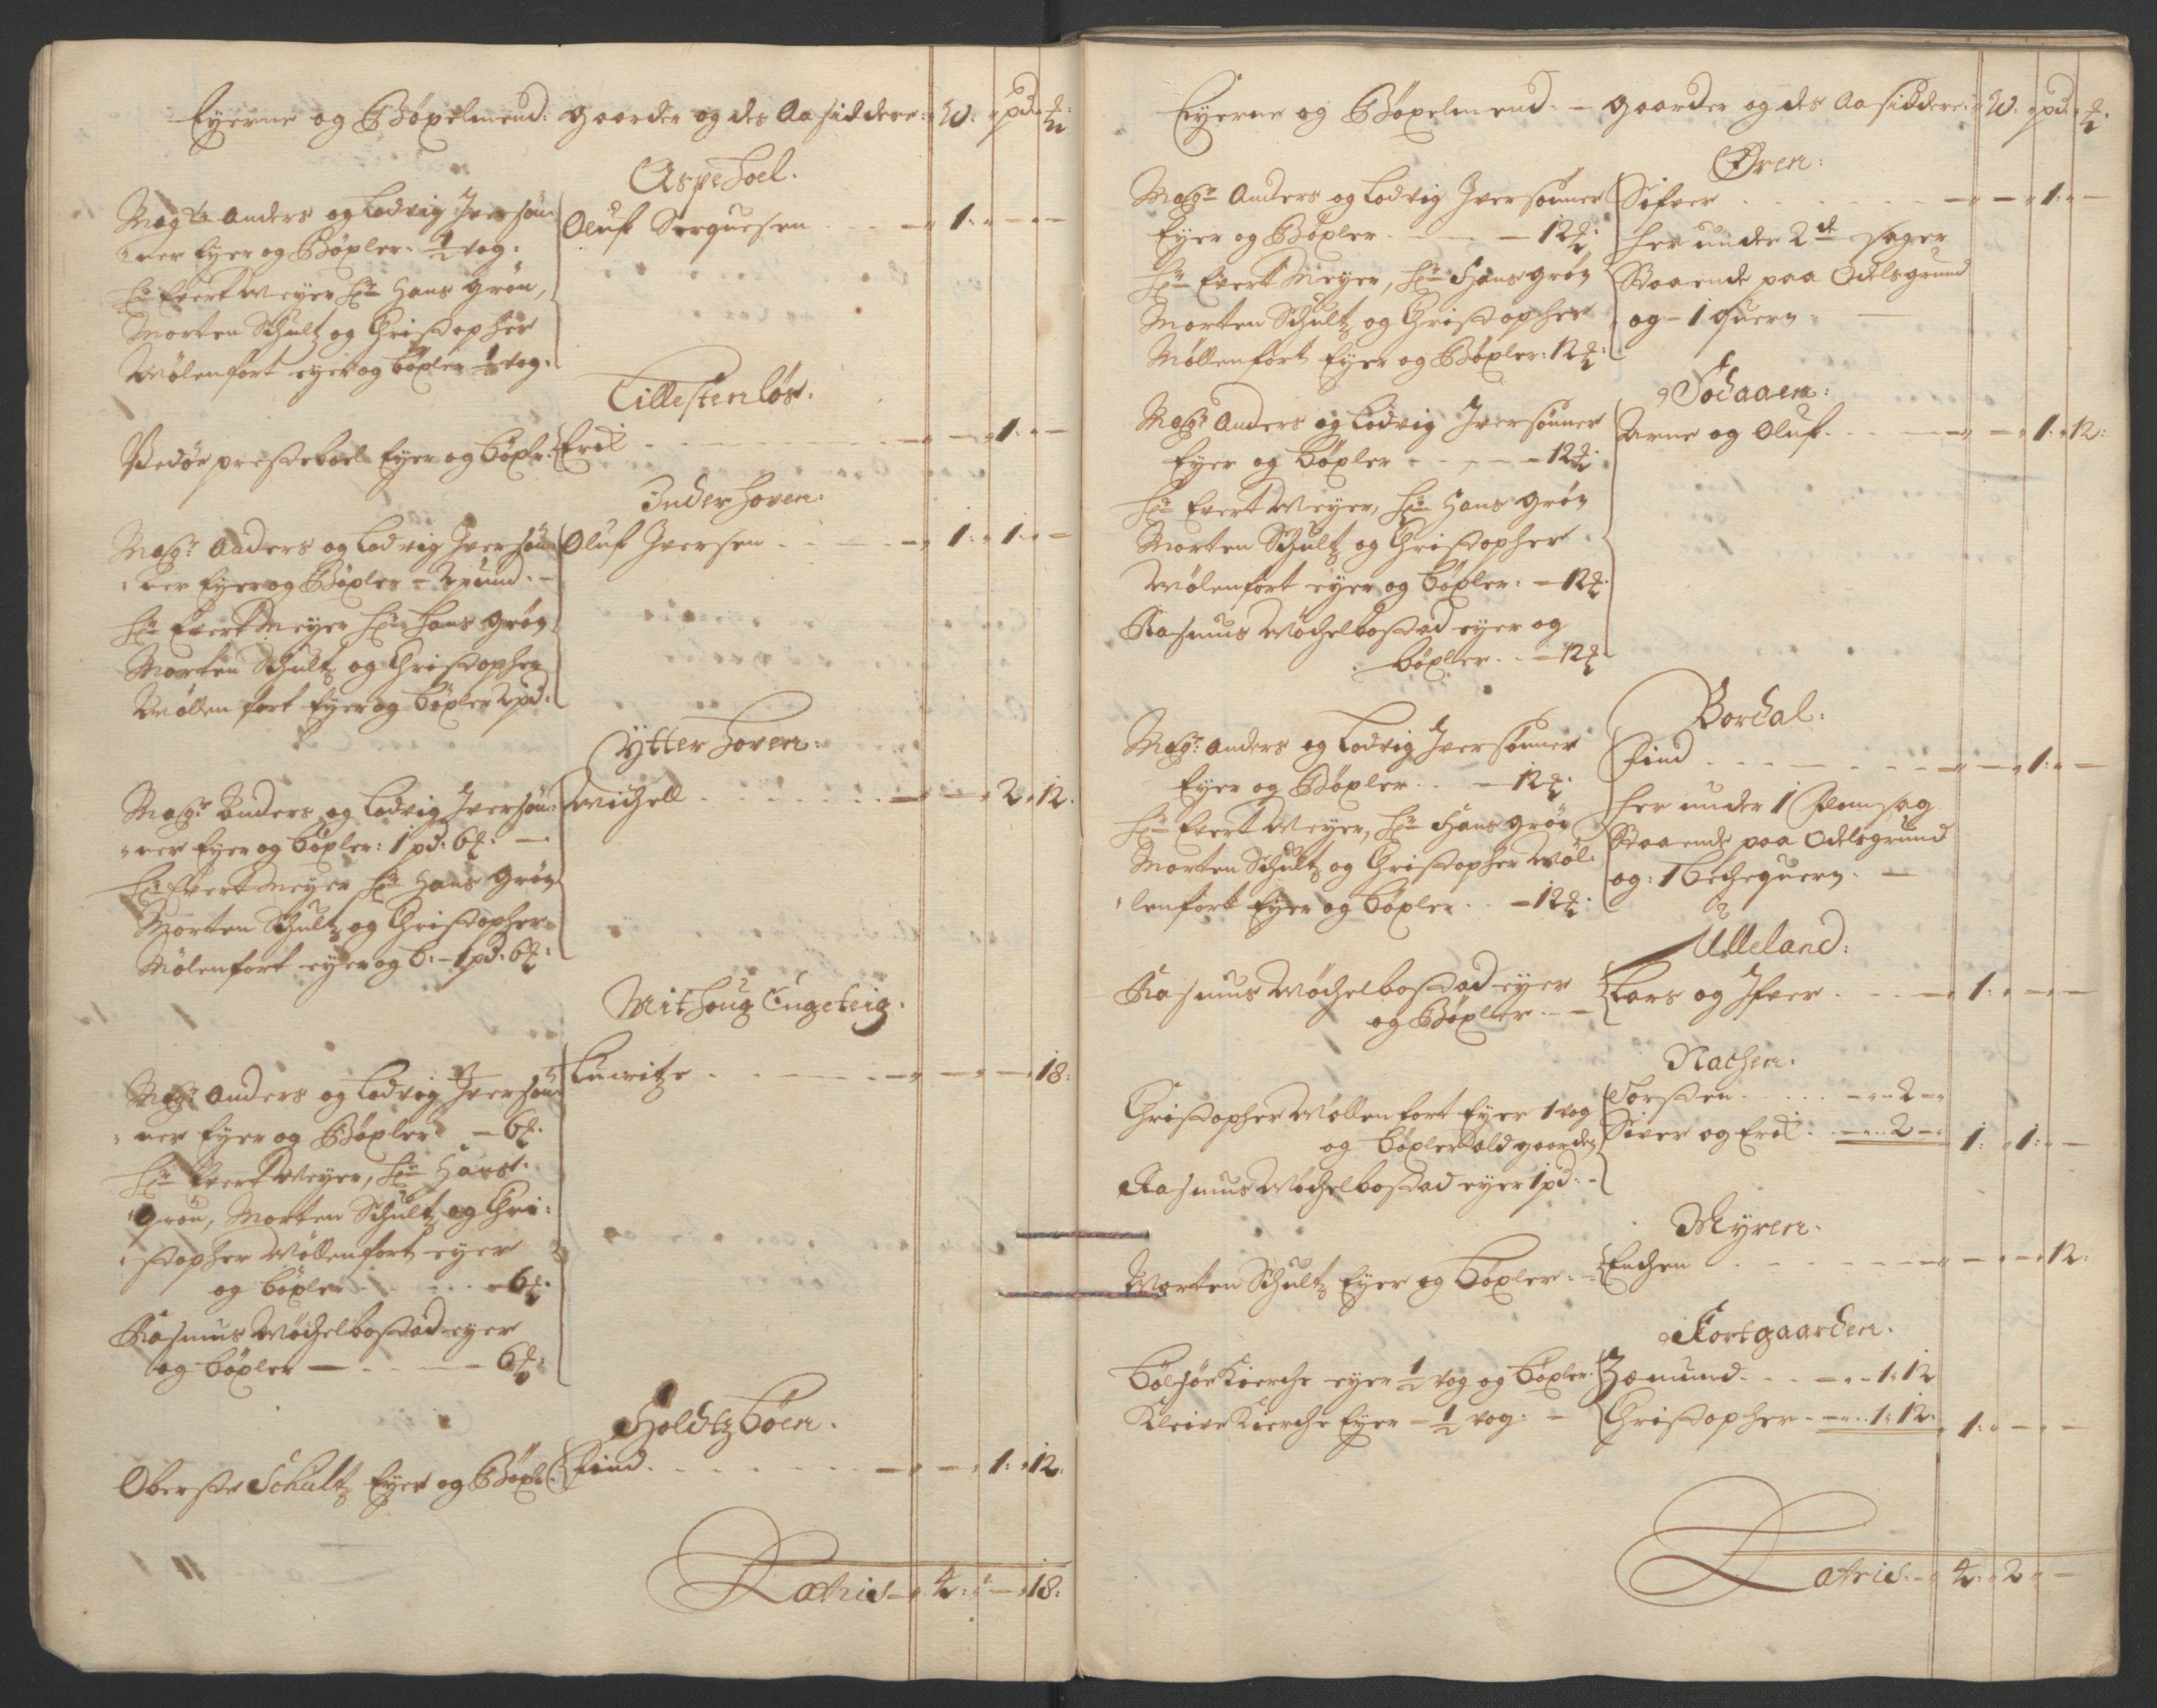 Eyerne og Böxelmend: gaarder og des Aasiddere: W: pd: ℔:
Aspehoel.
Magr. Anders og Lodvig Iversön:
ner Eyer og Böxler. ½ vog:
Hr. Evert Meyer Hr. Hans Grön,
Morten Schultz og Christopher
Mölenfort eyer og böxler ½ vog:
Oluf Serquesen - 1: - -
Tillestenlös.
Vedöe presteboel Eyer og böxlr. Erik - - 1: -
Inderhoven:
Magr. Anders og Lodvig Iversön:
ner Eyer og Böxler - 2 pund. -
Hr. Evert Meyer Hr. Hans Grön
Morten Schultz og Christopher
Möllenfort Eyer og böxler 2 pd:
Oluf Iversen - 1: 1: -
Ytterhoven:
Magr. Anders og Lodvig Iversön:
ner Eyer og böxler: 1 pd: 6℔: -
Hr. Evert Meyer Hr. Hans Grön
Morten Schultz og Christopher
Mölenfort eyer og b: - 1 pd: 6℔:
Michell - - 2: 12:
Mithoug Engeteig.
Magr. Anders og Lodvig Iversön:
ner Eyer og Böxler - 6℔:
Hr. Evert Meyer, Hr. Hans
Grön, Morten Schultz og Chri:
stopher Möllenfort eyer
og böxler - 6℔:
Rasmus Möchelbostad eyer
og böxler - 6℔:
Lauritz - - - 18:
Holdtzböen.
Oberste Schultz Eyer og Böxlr. Find. - - 1: 12:
Lateris - 4: - 18:
Eyerne og Böxelmend: - gaarder og des Aasiddere: W: pd: ℔:
Øren:
Magr. Anders og Lodvig Iversönner
Eyer og Böxler - 12℔:
Hr. Evert Meyer, Hr. Hans Grön
Morten Schultz og Christopher
Möllenfort Eyer og Böxler: 12℔:
Sifver - - 1: -
her under 2de sager
Staaende paa Odelsgrund
og - 1 quern -
Södaaen:
Magr. Anders og Lodvig Iversönner
Eyer og böxler - 12℔:
Hr. Evert Meyer, Hr. Hans Grön
Morten Schultz og Christopher
Mölenfort eyer og böxler: - 12℔:
Rasmus Möchelbostad eyer og
böxler. - 12℔
Arne og Oluf. - - 1: 12:
Bordal:
Magr. Anders og Lodvig Iversönner
Eyer og Böxler - 12℔:
Hr. Evert Meyer, Hr. Hans Grön
Morten Schultz og Christopher Möl:
lenfort Eyer og böxler - 12℔:
Find - - 1: -
her under 1 Flomsag
Staaende paa Odelsgrund
og: 1 bechequern. -
Ulleland:
Rasmus Möchelbostad eyer
og Böxler. -
Lars og Ifver - 1: - -
Nachen.
Christopher Möllenfort Eyer 1 vog
og böxler ald gaarden
Rasmus Möchelbostad eyer 1 pd: -
Torsten - 2 -
Siver og Erik - 2 - 1: 1: -
Myren.
Morten Schultz Eyer og böxler: - Enchen - - - 12:
Kortgaarden.
Bölsöe Kierche eyer ½ vog og böxler:
Kleive Kierche Eyer - ½ vog: -
Zæmund. - 1: 12
Christopher - 1: 12: 1: - -
Lateris. - 4: 2 -